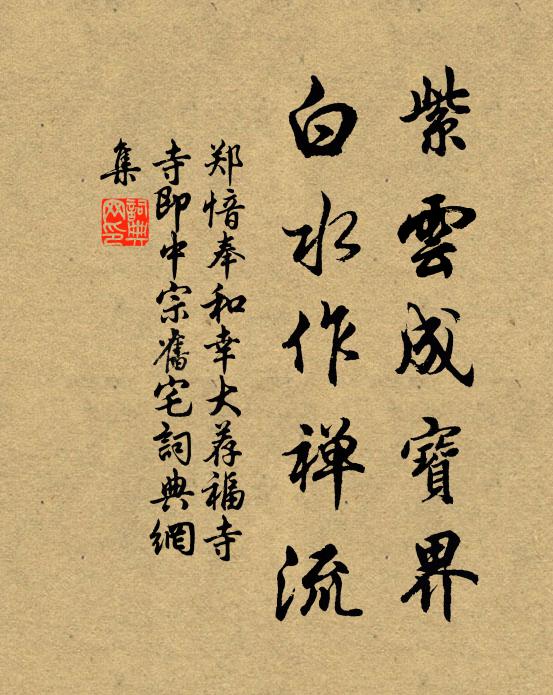 紫雲成寶界
白水作禅流
郑愔奉和幸大荐福寺
寺即中宗舊宅詞典網
集
詞典網印